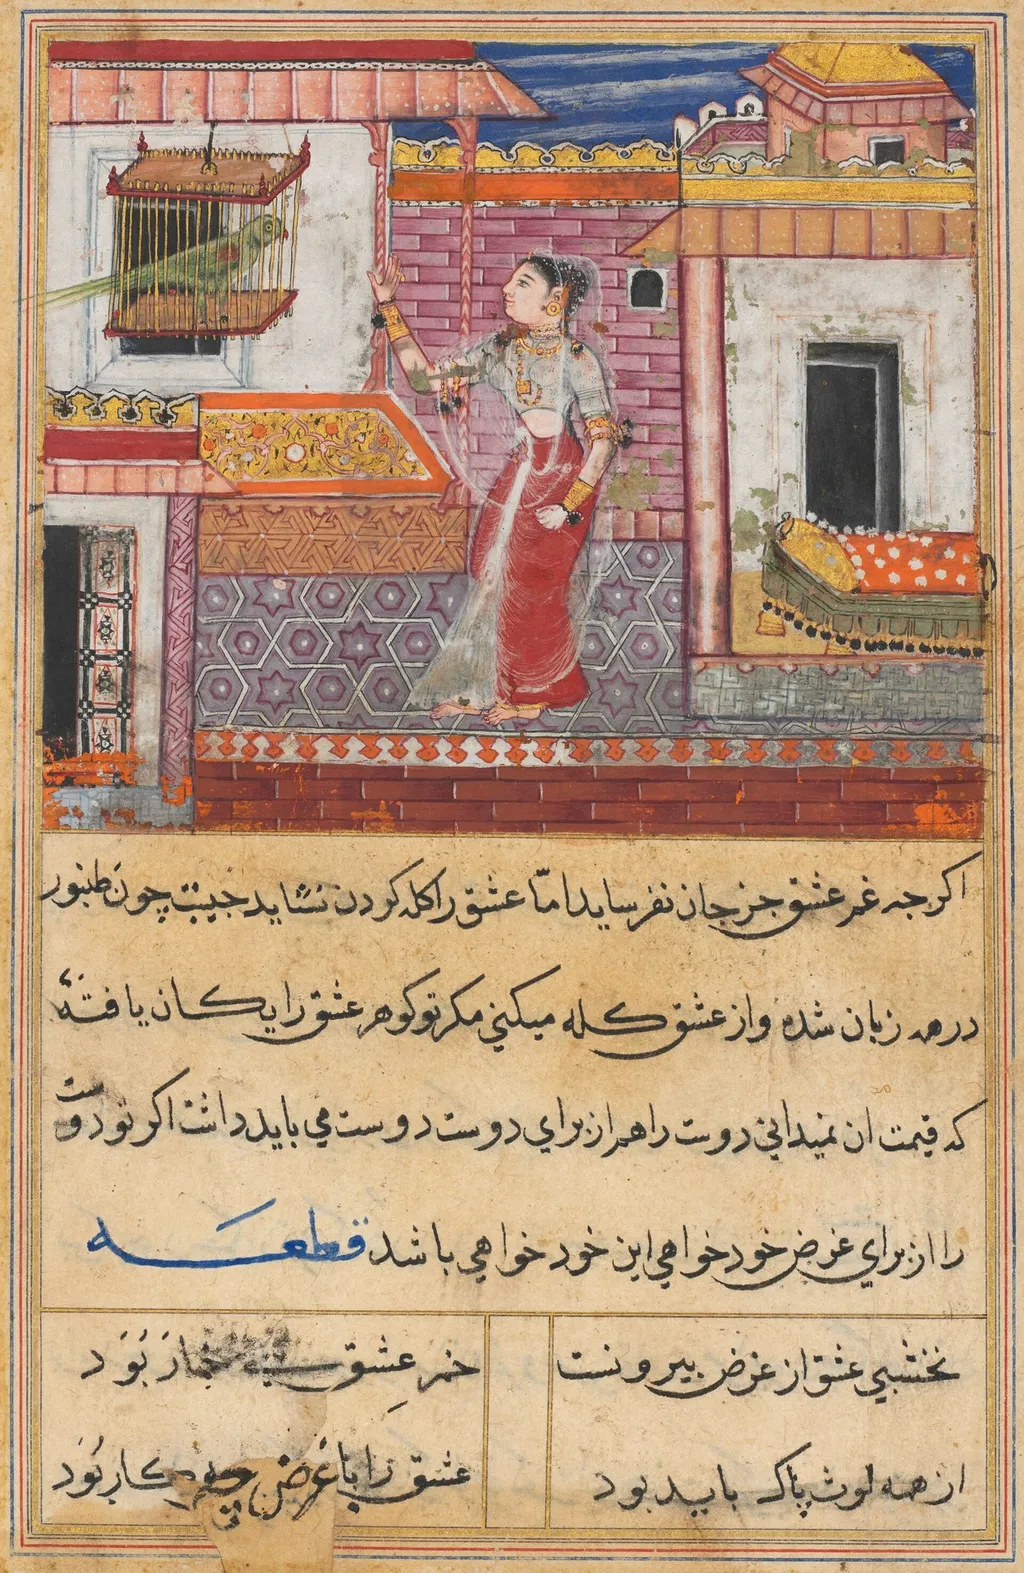 اکرجه غم عشق جز جان نفرساید امّا عشق را کله کردن نشاید جیست چون طنبور
در همه زبان شده و از عشق کله میکنی مکر تو کوهر عشق رایکان یافتهٔ
که قیمت ان نمیدانی دوست را هم از برای دوست دوست می باید داشت اکر تو دوست
را از برای غرض خود خواهی این خود خواهی باشد قطعه
نخشبی عشق از غرض بیرونست خمر عشق بی خمار نبود
از همه لوث پاک باید بود عشق را با غرض چه کار بود